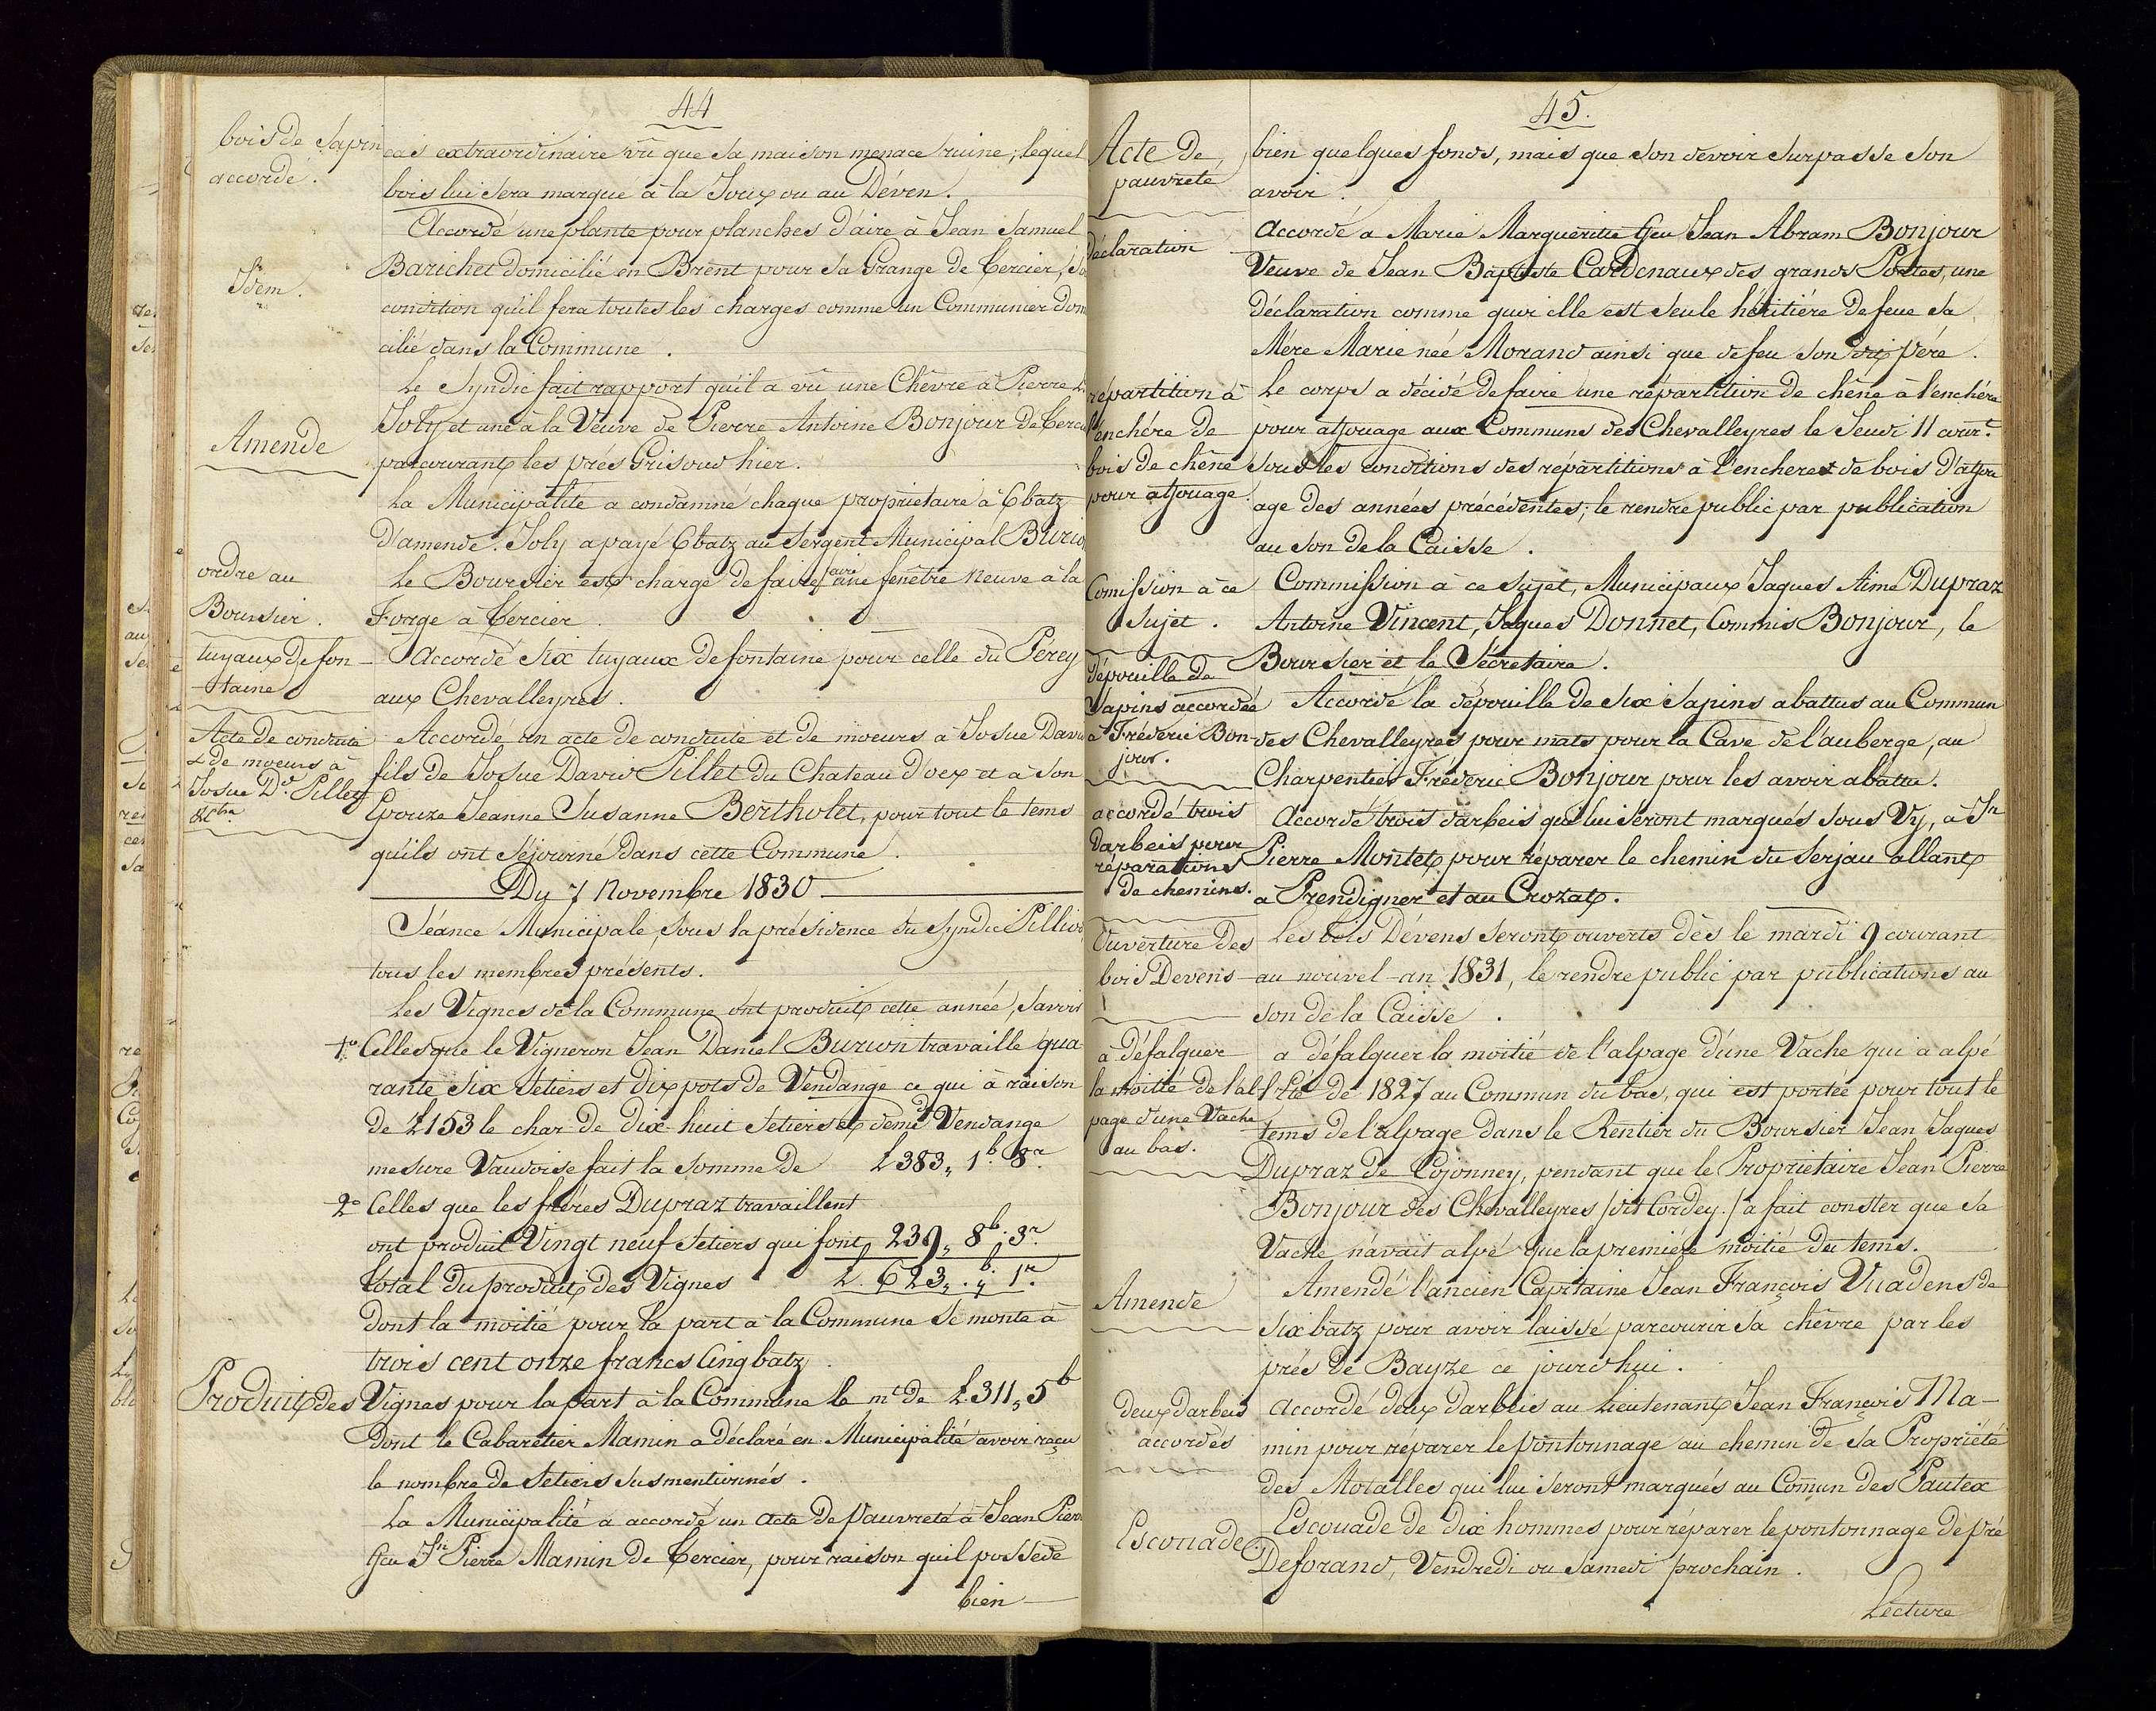 44
bois de Sapin
accordé.
cas extraordinaire vû que sa maison menace ruine; lequel
bois lui sera marqué à la Joux ou au Déven.
Idem.
Accordé une plante pour planches d'aire à Jean Samuel
Barichet domicilié en Brent pour sa Grange de Cercier,
condition qu'il fera toutes les charges comme un Communier domi
cilié dans la Commune.
Amende
Le Syndic fait rapport qu'il a vû une Chèvre à Pierre
Joly et une à la Veuve de Pierre Antoine Bonjour de Cercier
parcourant les prés Grisoud hier.
La Municipalité a condamné chaque propriétaire à 6 batz
d'amende. Joly a payé 6 batz au Sergent Municipal Burion
ordre au
Boursier.
Le Boursier est chargé de faire faire une fenêtre neuve à la
Forge à Cercier.
tuyaux de fon-
-taine
Accordé six tuyaux de fontaine pour celle du Pérey
aux Chevalleyres.
Acte de conduite
& de moeurs à
Josué Dd. Pillet
Accordé un acte de conduite et de moeurs à Josué David
fils de Josué David Pillet du Chateau d'oex et à son
Epouze Jeanne Susanne Bertholet, pour tout le tems
qu'ils ont séjourné dans cette Commune.
Du 7 Novembre 1830
Séance Municipale, sous la présidence du Syndic Pilliod
tous les membres présents.
Les Vignes de la Commune ont produit cette année, Savoir
1o Celles que le Vigneron Jean Daniel Burion travaille qua
rante six Setiers et dix pots de Vendange ce qui à raison
de £153 le char de dix-huit Setiers et demi de Vendange
mesure Vaudoise fait la somme de £383„ 1b. 8r.
2o Celles que les frères Dupraz travaillent
ont produit Vingt neuf Setiers qui font 239„ 8b. 3r.
Total du produit des Vignes £. 623„ . „b. 1r.
dont la moitié pour la part à la Commune se monte à
trois cent onze francs cinq batz.
Produit des Vignes pour la part à la Commune le mt de £311„5b
dont le Cabaretier Mamin a déclaré en Municipalité avoir reçu
le nombre de Setiers susmentionnés.
La Municipalité a accordé un acte de pauvreté à Jean Pierre
ffeu Jn Pierre Mamin de Cercier, pour raison qu'il possède
bien
45.
Acte de
pauvreté
bien quelques fonds, mais que son devoir surpasse son
avoir.
Déclaration
Accordé à Marie Marguerite ffeu Jean Abram Bonjour
Veuve de Jean Baptiste Cardenaux des grands Portes, une
déclaration comme quoi elle est seule héritière de feue sa
Mère Marie née Morand ainsi que de feu son dit père.
répartition à
l'enchère de
bois de chêne
pour affouage.
Le corps a décidé de faire une répartition de chêne à l'enchère
pour affouage aux Communs des Chevalleyres le Jeudi 11 court.
sous les conditions des répartitions à l'enchère de bois d'affou
age des années précédentes; le rendre public par publication
au son de la Caisse.
Comission à ce
Sujet.
Commission à ce sujet, Municipaux Jaques Aimé Dupraz
Antoine Vincent, Jaques Donnet, Commis Bonjour, le
Boursier et le Sécretaire.
dépouille de
Sapins accordée
à Fréderic Bon-
jour.
Accordé la dépouille de six Sapins abattus au Commun
des Chevalleyres pour mats pour la Cave de l'auberge, au
Charpentier Fréderic Bonjour pour les avoir abattu.
accordé trois
darbeis pour
réparations
de chemins.
Accordé trois darbeis qui lui seront marqués sous Vy, à Jn
Pierre Montet pour réparer le chemin du Serjau allant
à Prendigner et au Crozat.
Ouverture des
bois Devens
Les bois Dévens seront ouverts dès le mardi 9 courant
au nouvel-an 1831, le rendre public par publications au
son de la Caisse.
à défalquer
la moitié de l'al-
page d'une Vache
au bas.
à défalquer la moitié de l'alpage d'une Vache qui a alpé
l'Eté de 1827 au Commun du bas, qui est portée pour tout le
tems de l'alpage dans le Rentier du Boursier Jean Jaques
Dupraz de Cojonney, pendant que le Proprietaire Jean Pierre
Bonjour des Chevalleyres /dit Cordey./ a fait conster que sa
Vache n'avait alpé que la première moitié du tems.
Amende
Amendé l'ancien Capitaine Jean François Vuadens de
six batz pour avoir laissé parcourir sa chèvre par les
prés de Bayze ce jourd'hui.
deux darbeis
accordés
Accordé deux darbeis au Lieutenant Jean François Ma-
min pour réparer le pontonnage au chemin de sa Propriété
des Motalles qui lui seront marqués au Comun des Pautex
Escouade.
Escouade de dix hommes pour réparer le pontonnage de pré
Deforand, Vendredi ou Samedi prochain.
Lecture